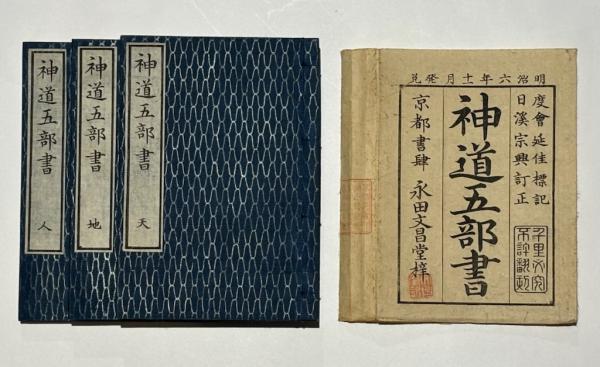 明治六年十一月發兌
度會延佳標記
日溪宗興訂正
千里必究
不許翻刻
神道五部書
京都書肆 永田文昌堂梓
神道五部書 天
神道五部書 地
神道五部書 人